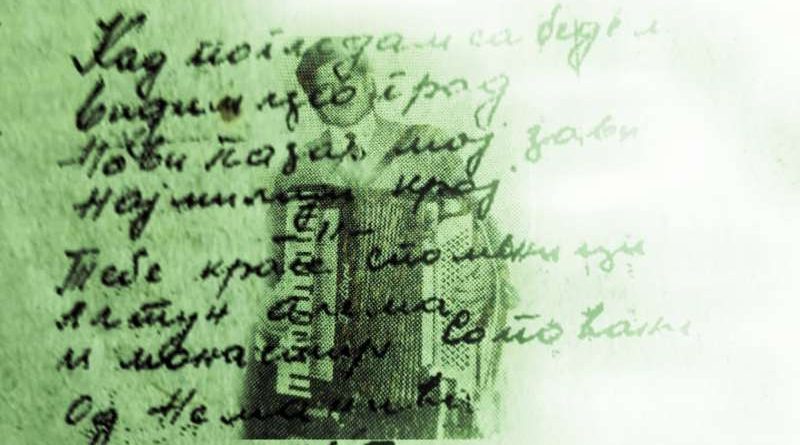 Кад погледам са бедем
видим цео град
Нови Пазар мој зави
најмилији крај
—"—
Тебе красе споменици
Алтун алема
и монастир Сопоћани
Од Немањића